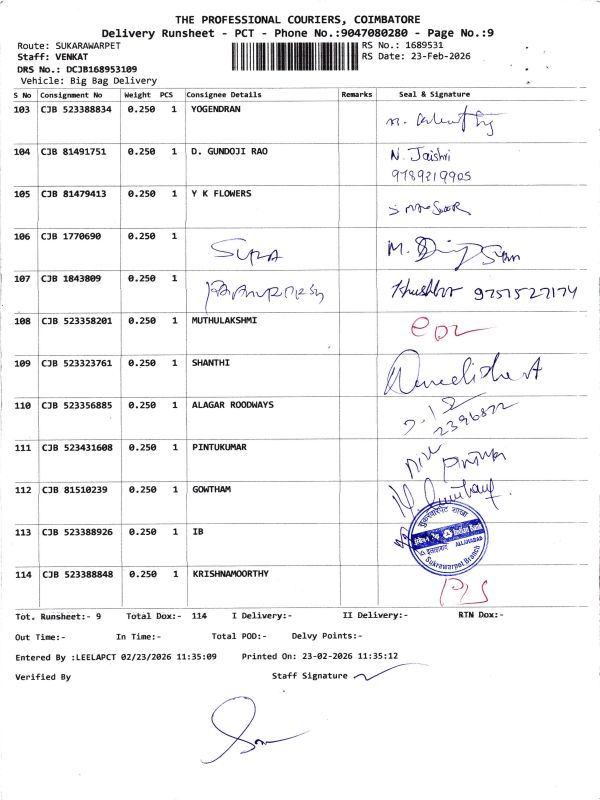 THE PROFESSIONAL COURIERS, COIMBATORE
Delivery Runsheet - PCT - Phone No.:9047080280 - Page No.:9
Route: SUKARAWARPET
RS No.: 1689531
Staff: VENKAT
RS Date: 23-Feb-2026
DRS No.: DCJB168953109
Vehicle: Big Bag Delivery
S No Consignment No Weight PCS Consignee Details Remarks Seal & Signature
103 CJB 523388834 0.250 1 YOGENDRAN
104 CJB 81491751 0.250 1 D. GUNDOJI RAO N. Jaishri
9789219905
105 CJB 81479413 0.250 1 Y K FLOWERS
106 CJB 1770690 0.250 1 M.
107 CJB 1843809 0.250 1 Khushboo 9757527174
108 CJB 523358201 0.250 1 MUTHULAKSHMI
109 CJB 523323761 0.250 1 SHANTHI
110 CJB 523356885 0.250 1 ALAGAR ROODWAYS
2396822
111 CJB 523431608 0.250 1 PINTUKUMAR
112 CJB 81510239 0.250 1 GOWTHAM
113 CJB 523388926 0.250 1 IB
ALLAHABAD
Sukrawarpet Branch
114 CJB 523388848 0.250 1 KRISHNAMOORTHY
Tot. Runsheet:- 9 Total Dox:- 114 I Delivery:- II Delivery:- RTN Dox:-
Out Time:- In Time:- Total POD:- Delvy Points:-
Entered By :LEELAPCT 02/23/2026 11:35:09 Printed On: 23-02-2026 11:35:12
Verified By Staff Signature